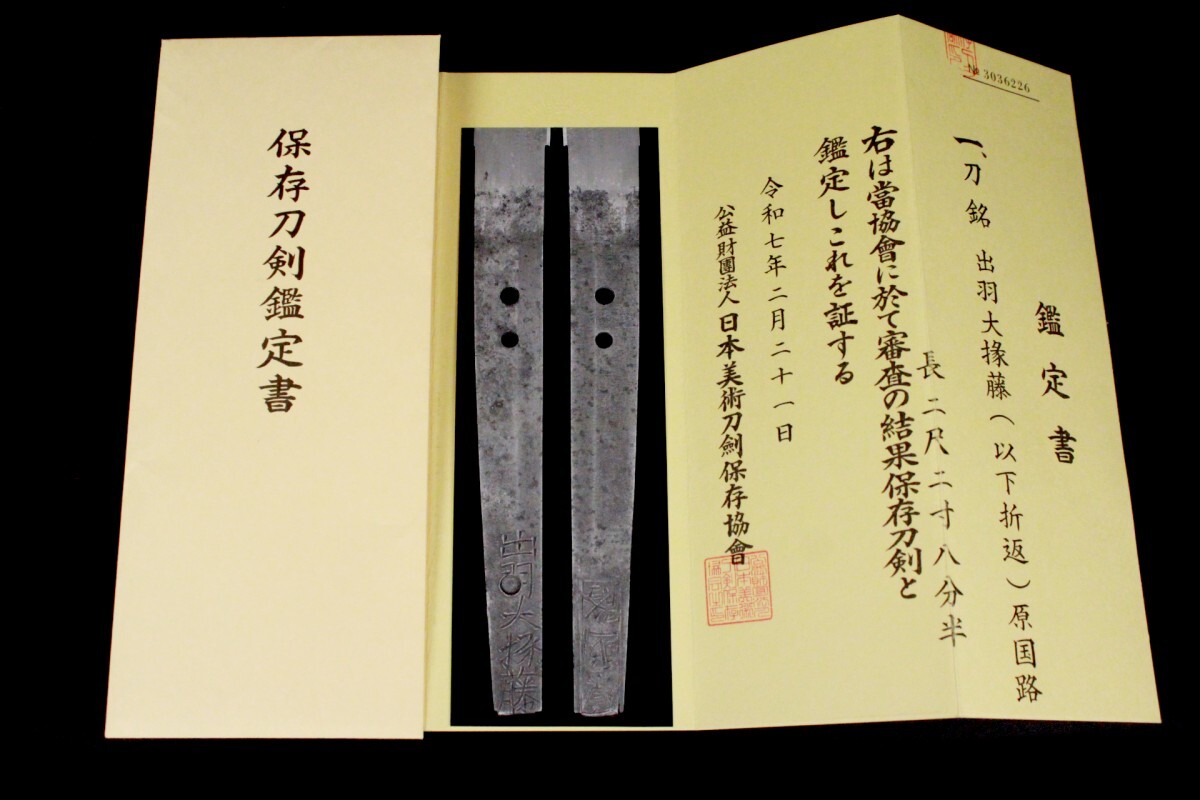 保存刀剣鑑定書
№ 3036226
鑑定書
一、刀 銘 出羽大掾藤(以下折返)原国路
長二尺二寸八分半
右は當協會に於て審査の結果保存刀剣と
鑑定しこれを証する
令和七年二月二十一日
公益財團法人 日本美術刀劍保存協會
出羽大掾藤